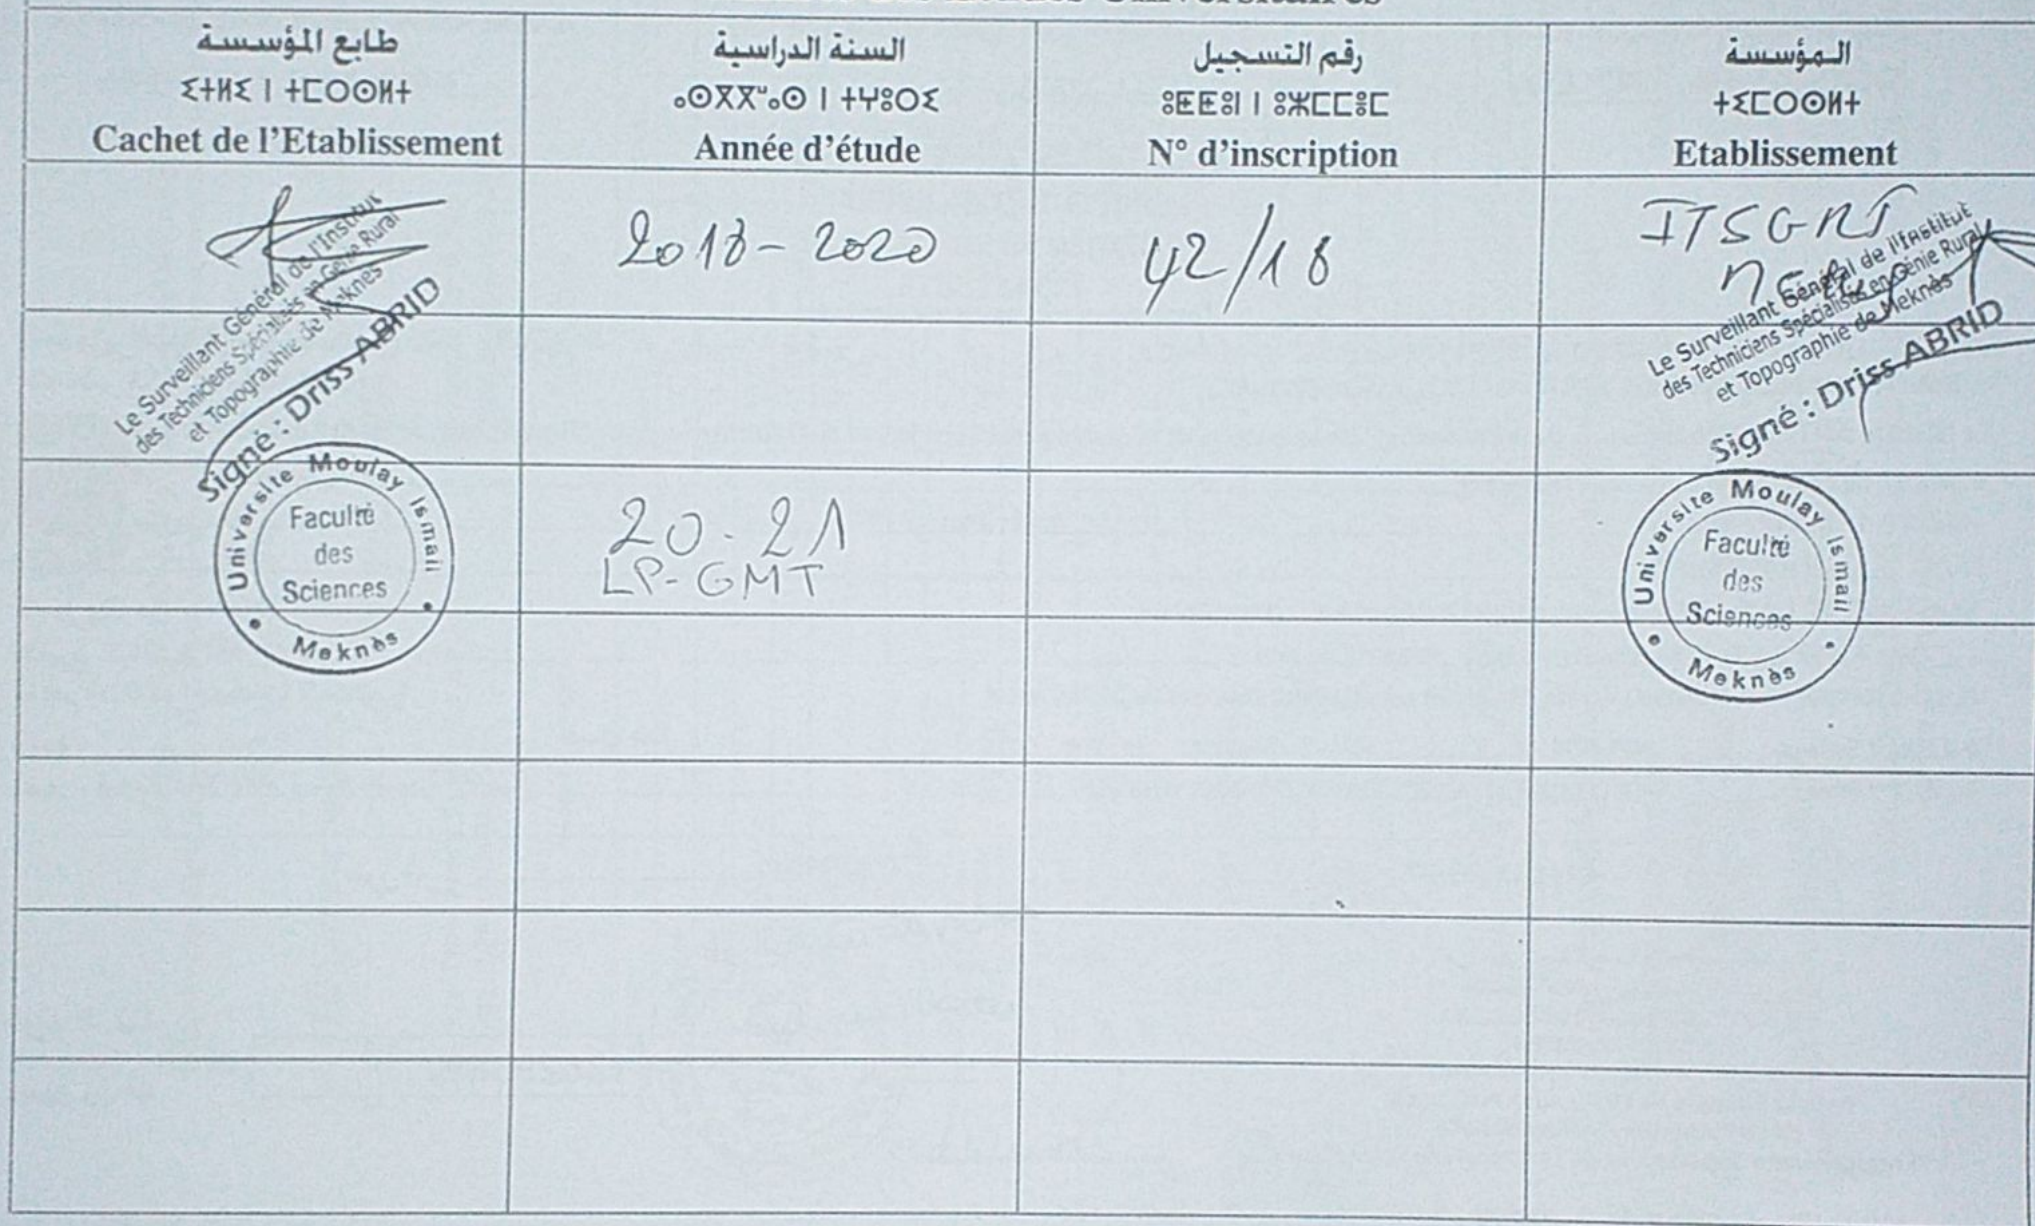 طابع المؤسسة
ⵉⵜⵍⵉ ⵏ ⵜⵎⵔⵙⵍⵜ
Cachet de l'Etablissement
السنة الدراسية
ⴰⵙⴳⴳⵯⴰⵙ ⵏ ⵜⵖⵓⵔⵉ
Année d'étude
رقم التسجيل
ⵓⵟⵟⵓⵏ ⵏ ⵓⵣⵎⵎⵓⵎ
N° d'inscription
المؤسسة
ⵜⵉⵎⵔⵙⵍⵜ
Etablissement
Le Surveillant Général de l'Institut
des Techniciens Spécialisés en Génie Rural
et Topographie de Meknès
Signé : Driss ABRID
2018-2020
42/18
ITSGRT
Le Surveillant Général de l'Institut
des Techniciens Spécialisés en Génie Rural
et Topographie de Meknès
Signé : Driss ABRID
Universite Moulay Ismail
Faculté
des
Sciences
Meknès
20-21
LP-GMT
Universite Moulay Ismail
Faculté
des
Sciences
Meknès